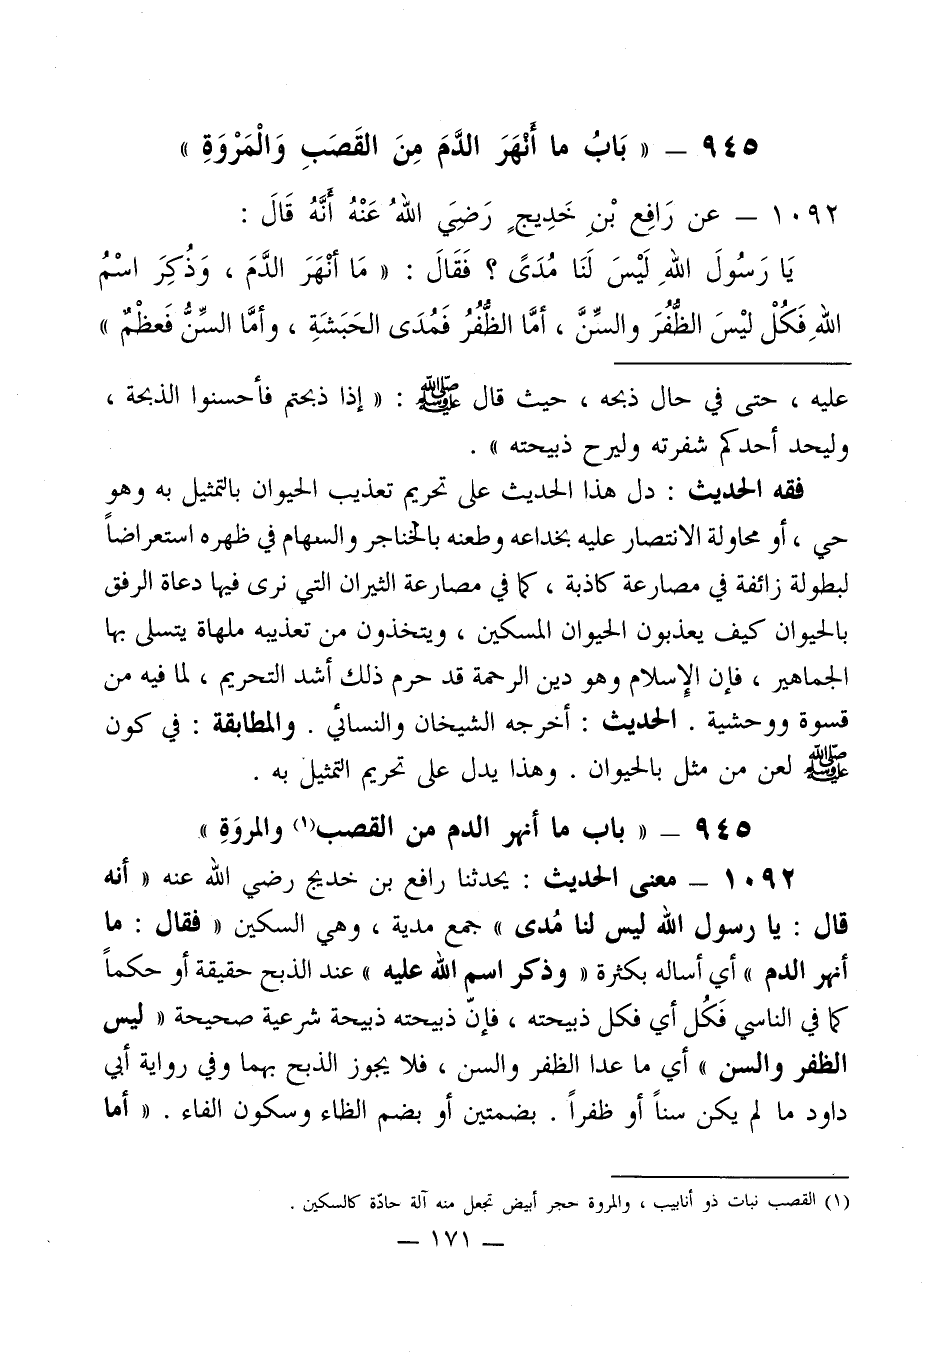 ٩٤٥ – « بَابُ ما أَنْهَرَ الدَّمَ مِنَ القَصَبِ وَالْمَرْوَةِ »
١٠٩٢ – عن رَافِعِ بْنِ خَدِيجٍ رَضِيَ اللهُ عَنْهُ أَنَّهُ قَالَ :
يَا رَسُولَ اللهِ لَيْسَ لَنَا مُدَىً ؟ فَقَالَ : « مَا أنْهَرَ الدَّمَ ، وَذُكِرَ اسْمُ
اللهِ فَكُلْ لَيْسَ الظُّفُرَ والسِّنَّ ، أمَّا الظُّفُرُ فَمُدَى الحَبَشَةِ ، وأمَّا السِّنُّ فَعَظْمٌ »
عليه ، حتى في حال ذبحه ، حيث قال ﷺ : « إذا ذبحتم فأحسنوا الذبحة ،
وليحد أحدكم شفرته وليرح ذبيحته » .
فقه الحديث : دل هذا الحديث على تحريم تعذيب الحيوان بالتمثيل به وهو
حي ، أو محاولة الانتصار عليه بخداعه وطعنه بالخناجر والسهام في ظهره استعراضاً
لبطولة زائفة في مصارعة كاذبة ، كما في مصارعة الثيران التي نرى فيها دعاة الرفق
بالحيوان كيف يعذبون الحيوان المسكين ، ويتخذون من تعذيبه ملهاة يتسلى بها
الجماهير ، فإن الإسلام وهو دين الرحمة قد حرم ذلك أشد التحريم ، لما فيه من
قسوة ووحشية . الحديث : أخرجه الشيخان والنسائي . والمطابقة : في كون
ﷺ لعن من مثل بالحيوان . وهذا يدل على تحريم التمثيل به .
٩٤٥ – « باب ما أنهر الدم من القصب(١) والمروَةِ »
١٠٩٢ – معنى الحديث : يحدثنا رافع بن خديج رضي الله عنه « أنه
قال : يا رسول الله ليس لنا مُدى » جمع مدية ، وهي السكين « فقال : ما
أنهر الدم » أي أساله بكثرة « وذكر اسم الله عليه » عند الذبح حقيقة أو حكماً
كما في الناسي فَكُل أي فكل ذبيحته ، فإنّ ذبيحته ذبيحة شرعية صحيحة « ليس
الظفر والسن » أي ما عدا الظفر والسن ، فلا يجوز الذبح بهما وفي رواية أبي
داود ما لم يكن سناً أو ظفراً . بضمتين أو بضم الظاء وسكون الفاء . « أما
(١) القصب نبات ذو أنابيب ، والمروة حجر أبيض تجعل منه آلة حادّة كالسكين .
– ١٧١ –